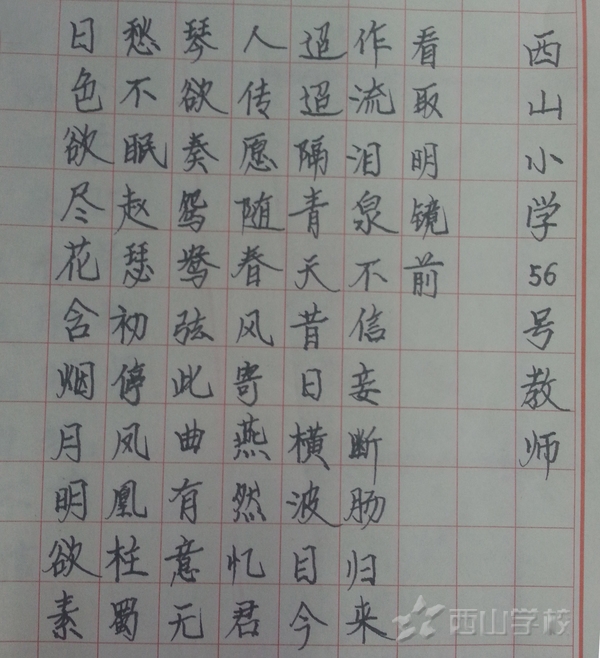 日色欲尽花含烟月明欲素
愁不眠赵瑟初停凤凰柱蜀
琴欲奏鸳鸯弦此曲有意无
人传愿随春风寄燕然忆君
迢迢隔青天昔日横波目今
作流泪泉不信妾断肠归来
看取明镜前
西山小学56号教师
西山学校